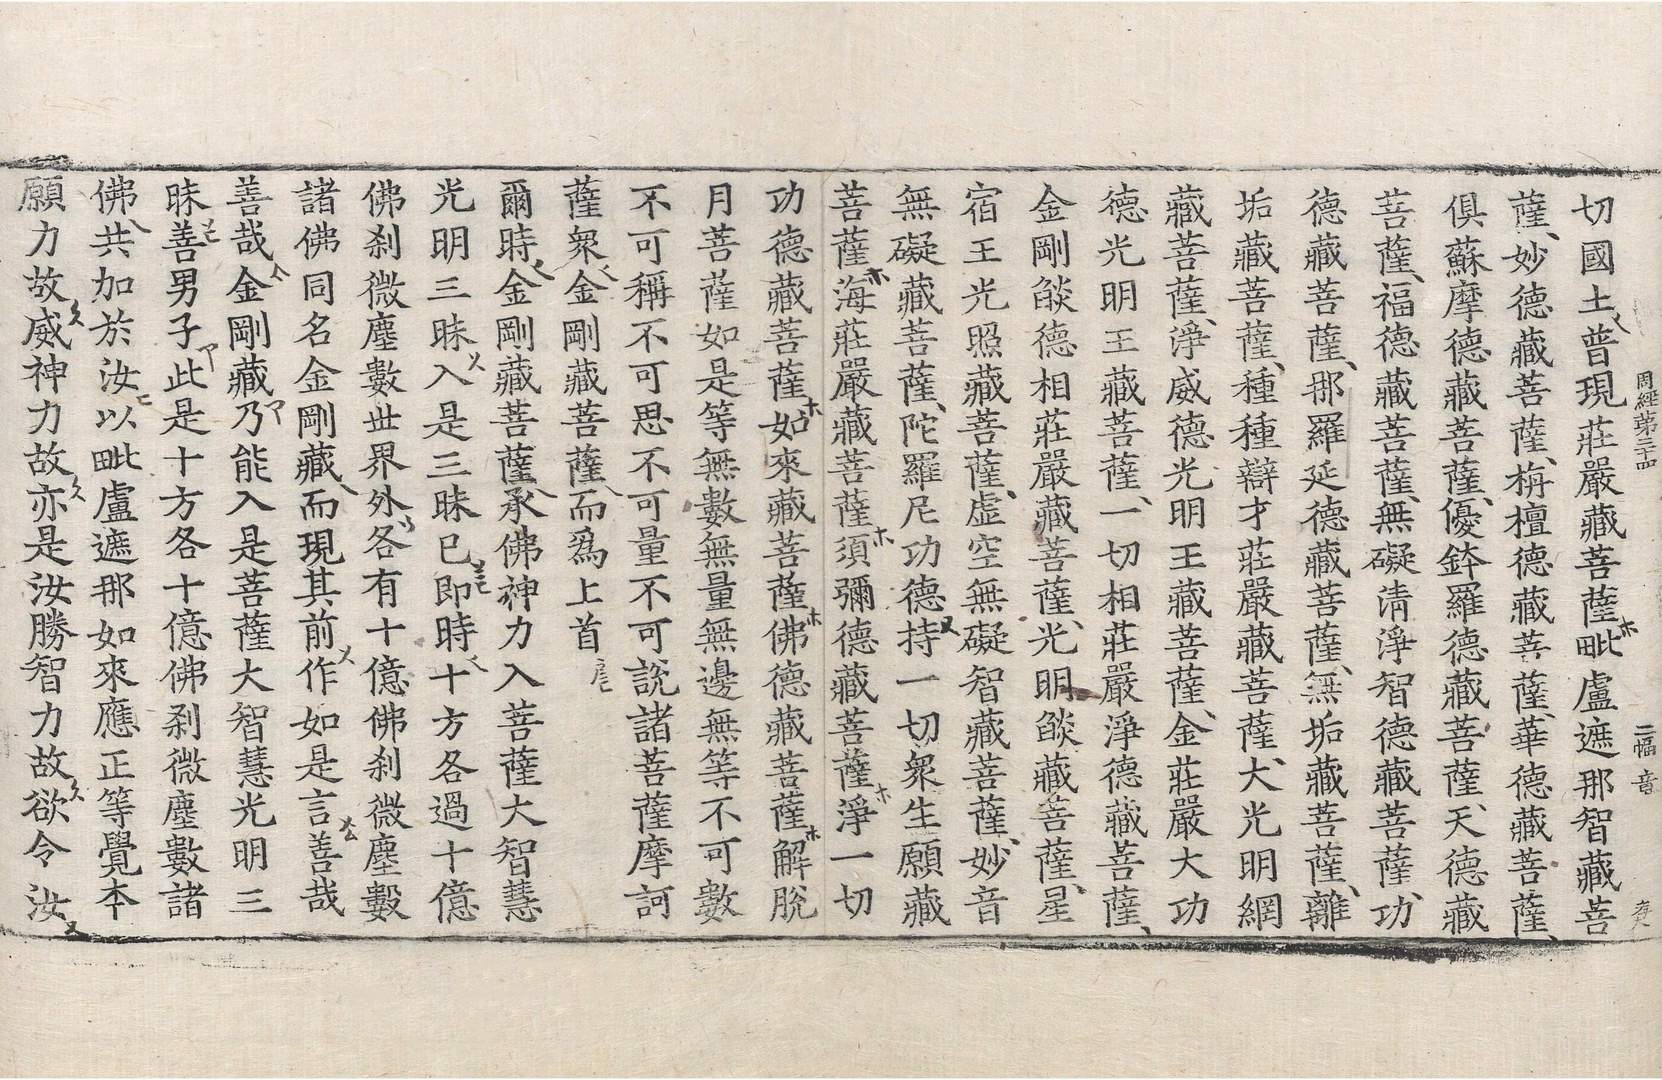 周經第三十四 二幅 音
切國土普現莊嚴藏菩薩毗盧遮那智藏菩
薩妙德藏菩薩栴檀德藏菩薩華德藏菩薩
俱蘇摩德藏菩薩優鉢羅德藏菩薩天德藏
菩薩福德藏菩薩無礙清淨智德藏菩薩功
德藏菩薩那羅延德藏菩薩無垢藏菩薩離
垢藏菩薩種種辯才莊嚴藏菩薩大光明網
藏菩薩淨威德光明王藏菩薩金莊嚴大功
德光明王藏菩薩一切相莊嚴淨德藏菩薩
金剛燄德相莊嚴藏菩薩光明燄藏菩薩星
宿王光照藏菩薩虛空無礙智藏菩薩妙音
無礙藏菩薩陀羅尼功德持一切衆生願藏
菩薩海莊嚴藏菩薩須彌德藏菩薩淨一切
功德藏菩薩如來藏菩薩佛德藏菩薩解脫
月菩薩如是等無數無量無邊無等不可數
不可稱不可思不可量不可說諸菩薩摩訶
薩衆金剛藏菩薩而爲上首
爾時金剛藏菩薩承佛神力入菩薩大智慧
光明三昧入是三昧已即時十方各過十億
佛刹微塵數世界外各有十億佛刹微塵數
諸佛同名金剛藏而現其前作如是言善哉
善哉金剛藏乃能入是菩薩大智慧光明三
昧善男子此是十方各十億佛刹微塵數諸
佛共加於汝以毗盧遮那如來應正等覺本
願力故威神力故亦是汝勝智力故欲令汝